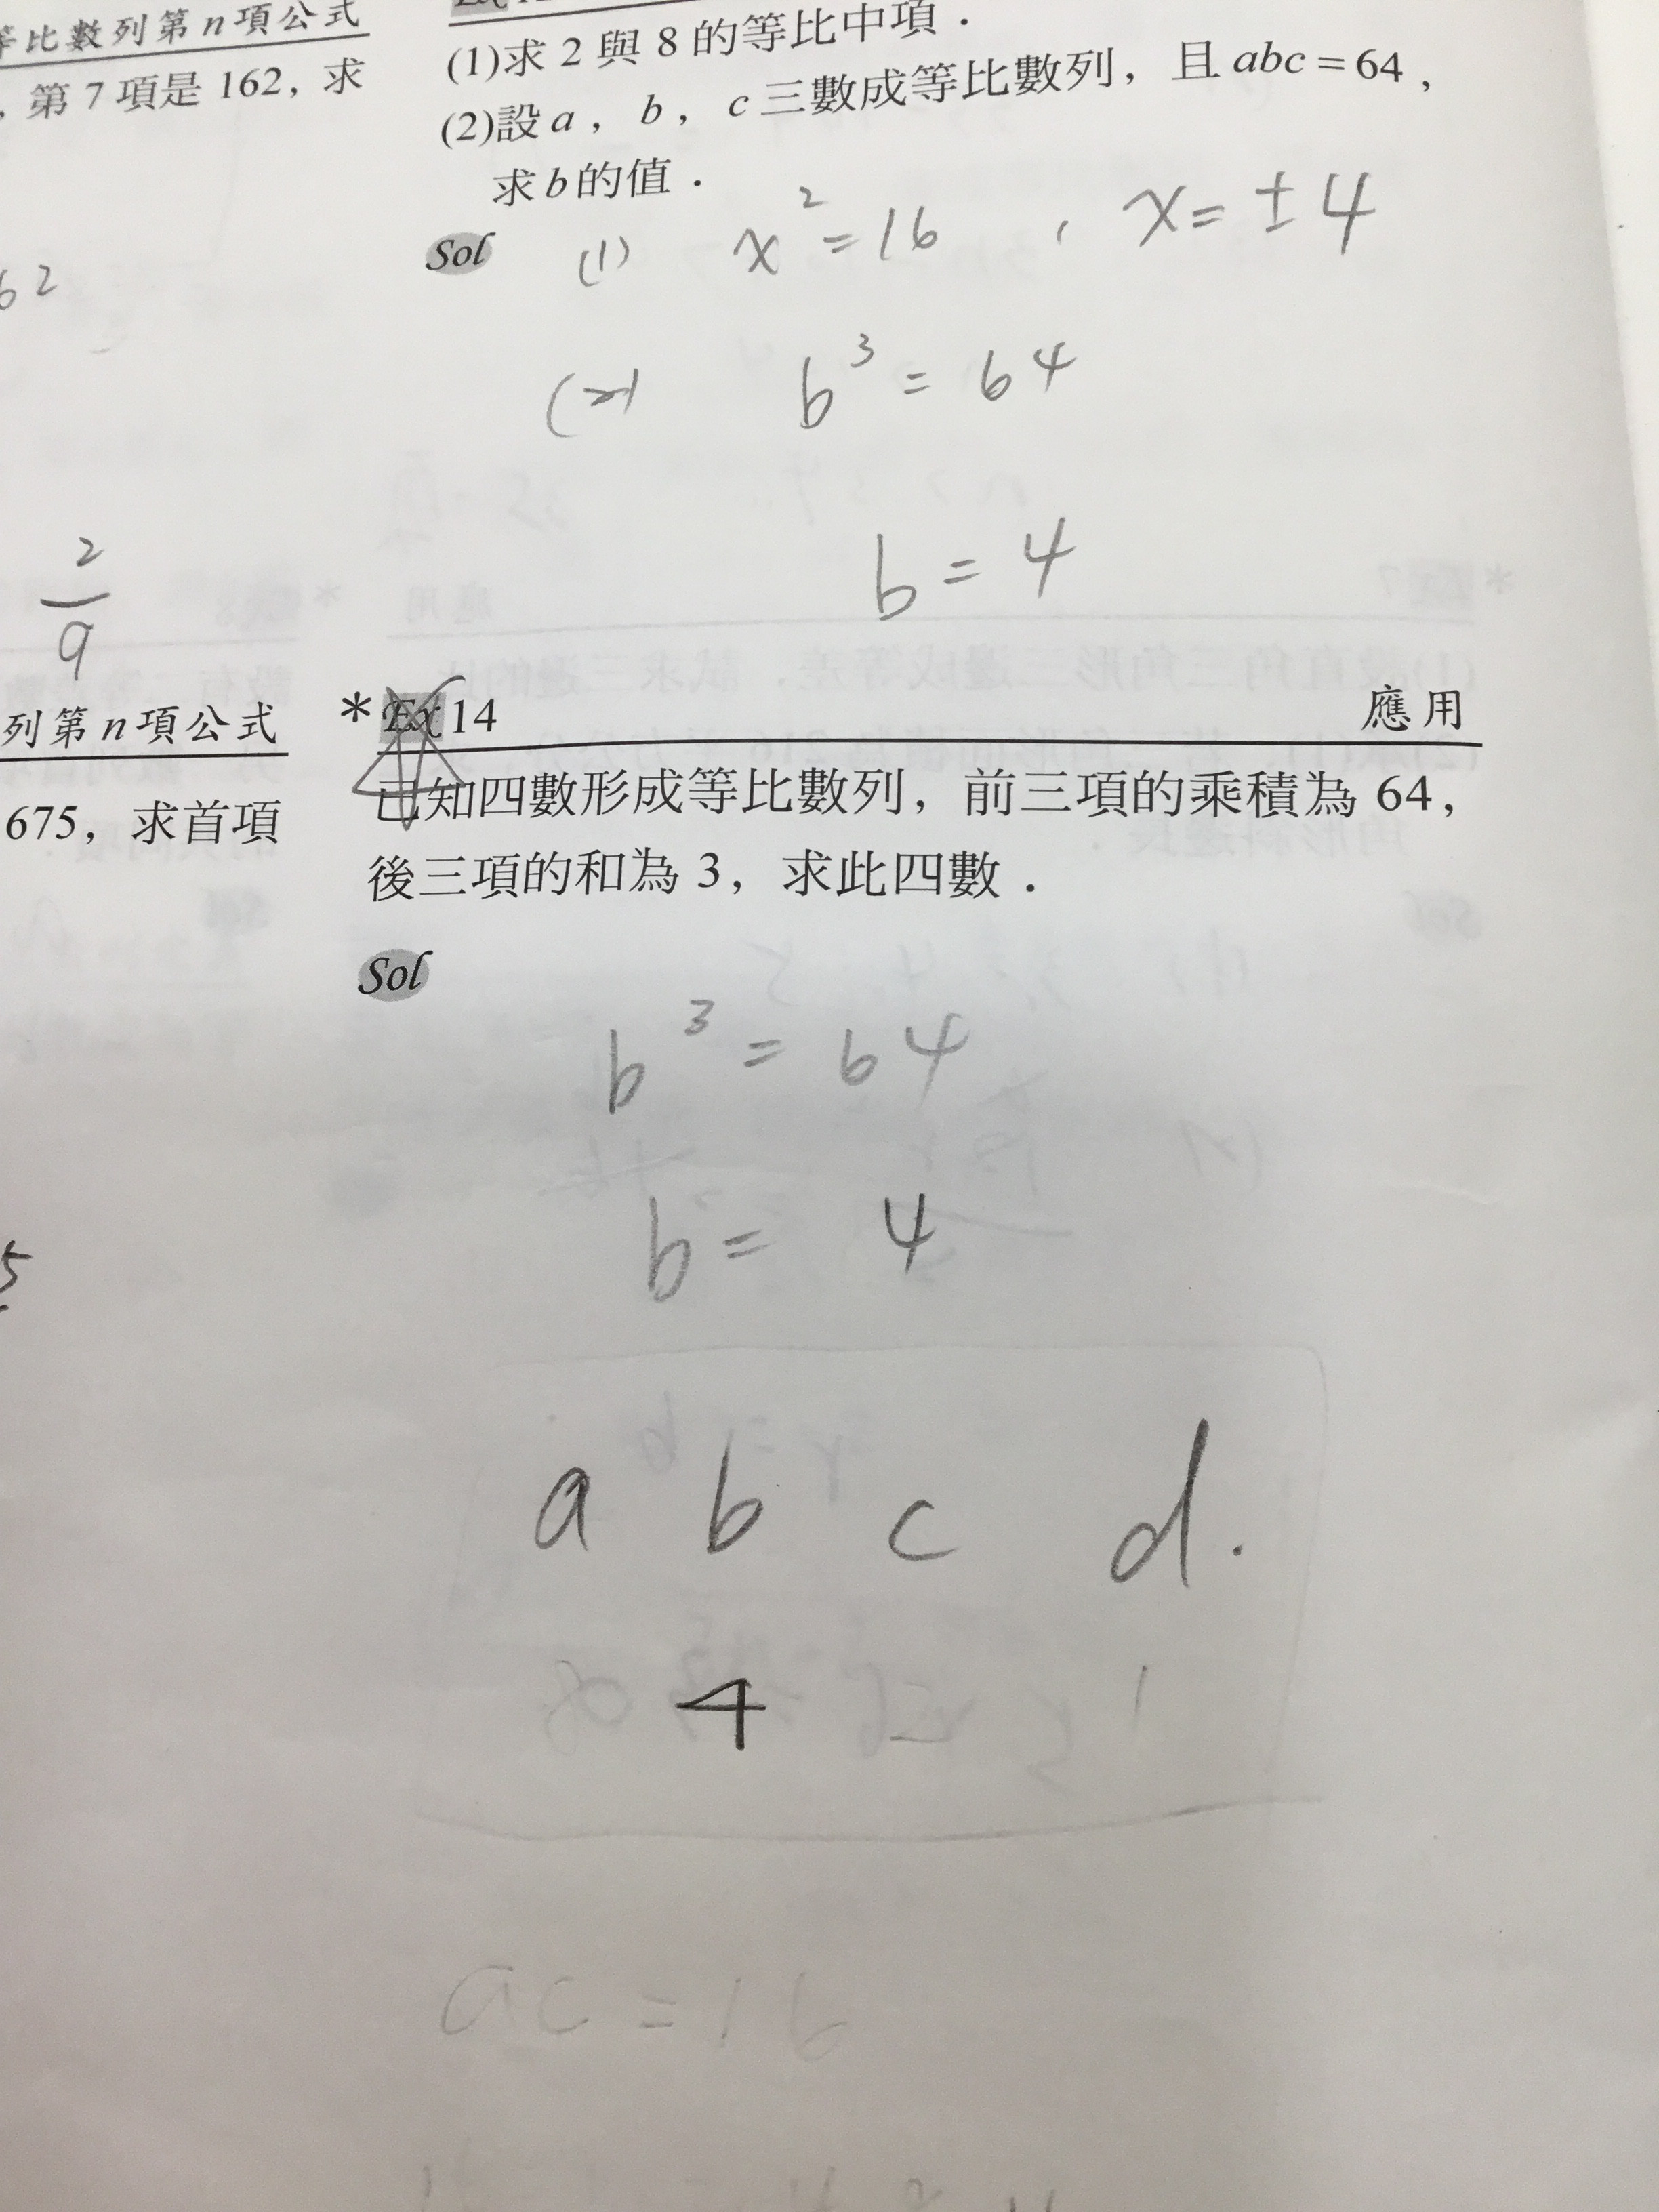 等比數列第n項公式
, 第 7 項是 162, 求
62
2
9
列第n項公式
675, 求首項
5
(1)求 2 與 8 的等比中項．
(2)設 a , b , c 三數成等比數列, 且 abc = 64 ,
求 b 的值．
Sol (1) x² = 16 , x = ± 4
(2) b³ = 64
b = 4
* Ex 14 應用
已知四數形成等比數列, 前三項的乘積為 64,
後三項的和為 3, 求此四數．
Sol
b³ = 64
b = 4
a b c d.
4
ac = 16